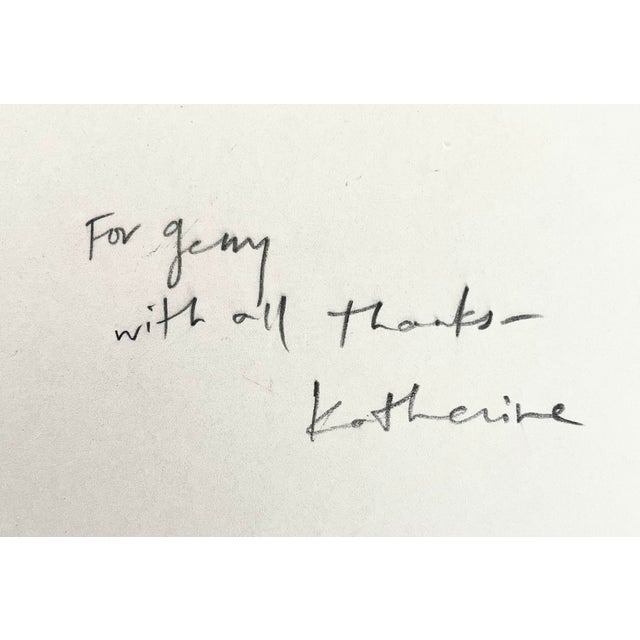 For Gerry
with all thanks–
Katherine